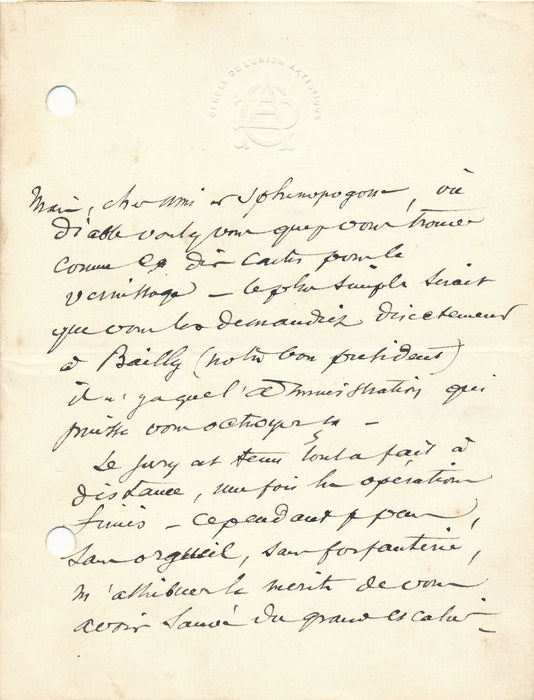 CERCLE DE L'UNION ARTISTIQUE
Mais, cher ami et sphenopogone, où
diable voulez vous que je vous trouve
comme ça dix cartes pour le
vernissage – le plus simple serait
que vous les demandiez directement
à Bailly (notre bon président)
il n'y a que l'administration qui
puisse vous octroyer ça –
Le Jury est tenu tout a fait à
distance, une fois son opération
finie – cependant je puis,
sans orgueil, sans forfanterie,
m'attribuer le mérite de vous
avoir sauvé du grand escalier –